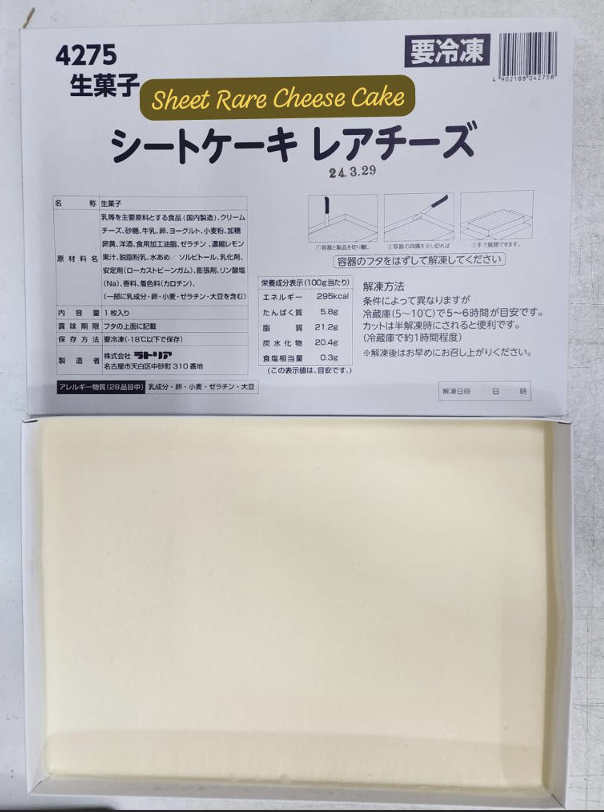 4275
要冷凍
4 902188 042758
生菓子
Sheet Rare Cheese Cake
シートケーキ レアチーズ
24.3.29
名 称 生菓子
原材料名
乳等を主要原料とする食品(国内製造)、クリーム
チーズ、砂糖、牛乳、卵、ヨーグルト、小麦粉、加糖
卵黄、洋酒、食用加工油脂、ゼラチン、濃縮レモン
果汁、脱脂粉乳、水あめ/ソルビトール、乳化剤、
安定剤(ローカストビーンガム)、膨張剤、リン酸塩
(Na)、香料、着色料(カロチン)、
(一部に乳成分・卵・小麦・ゼラチン・大豆を含む)
内容量 1枚入り
賞味期限 フタの上面に記載
保存方法 要冷凍(-18℃以下で保存)
製造者 株式会社 ラトリア
名古屋市天白区中砂町310番地
アレルギー物質(28品目中) 乳成分・卵・小麦・ゼラチン・大豆
栄養成分表示(100g当たり)
エネルギー 295kcal
たんぱく質 5.8g
脂質 21.2g
炭水化物 20.4g
食塩相当量 0.3g
(この表示値は、目安です。)
①容器と製品を切り離し
②容器の四隅を少し切れば
③手で展開できます。
容器のフタをはずして解凍してください
解凍方法
条件によって異なりますが
冷蔵庫(5〜10℃)で5〜6時間が目安です。
カットは半解凍時にされると便利です。
(冷蔵庫で約1時間程度)
※解凍後はお早めにお召し上がりください。
解凍日時 日 時